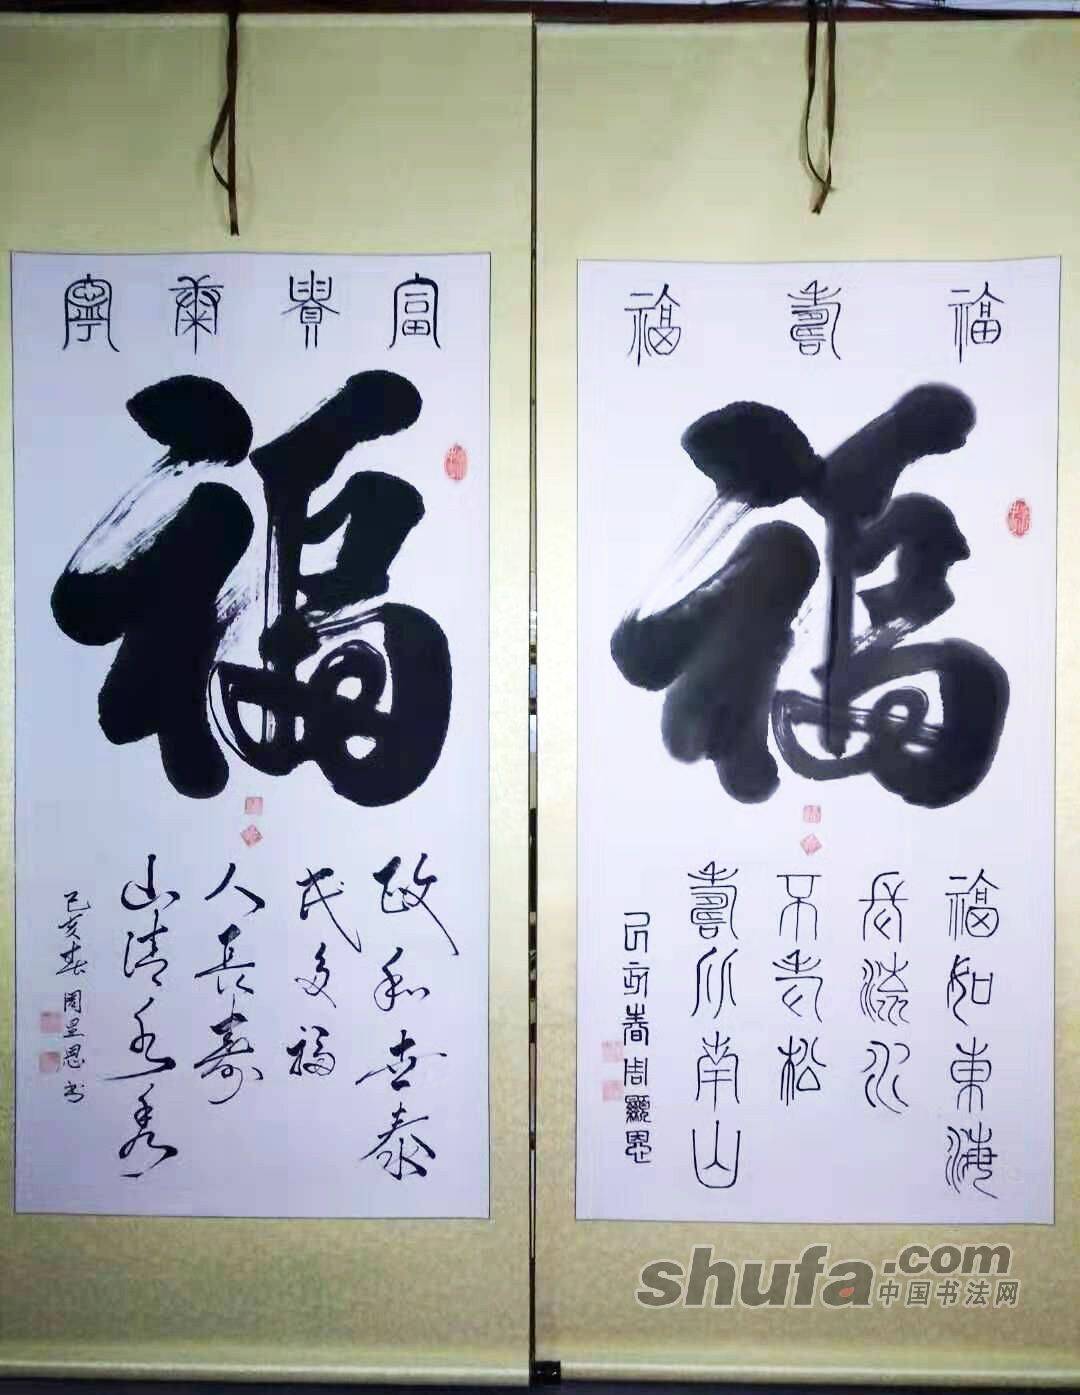 富貴康寧
福
政和世泰
民多福
人長壽
山清水秀
己亥春周显恩书
福壽福
福
福如東海
長流水
不老松
壽比南山
己亥春周顯恩
shufa.com
中国书法网